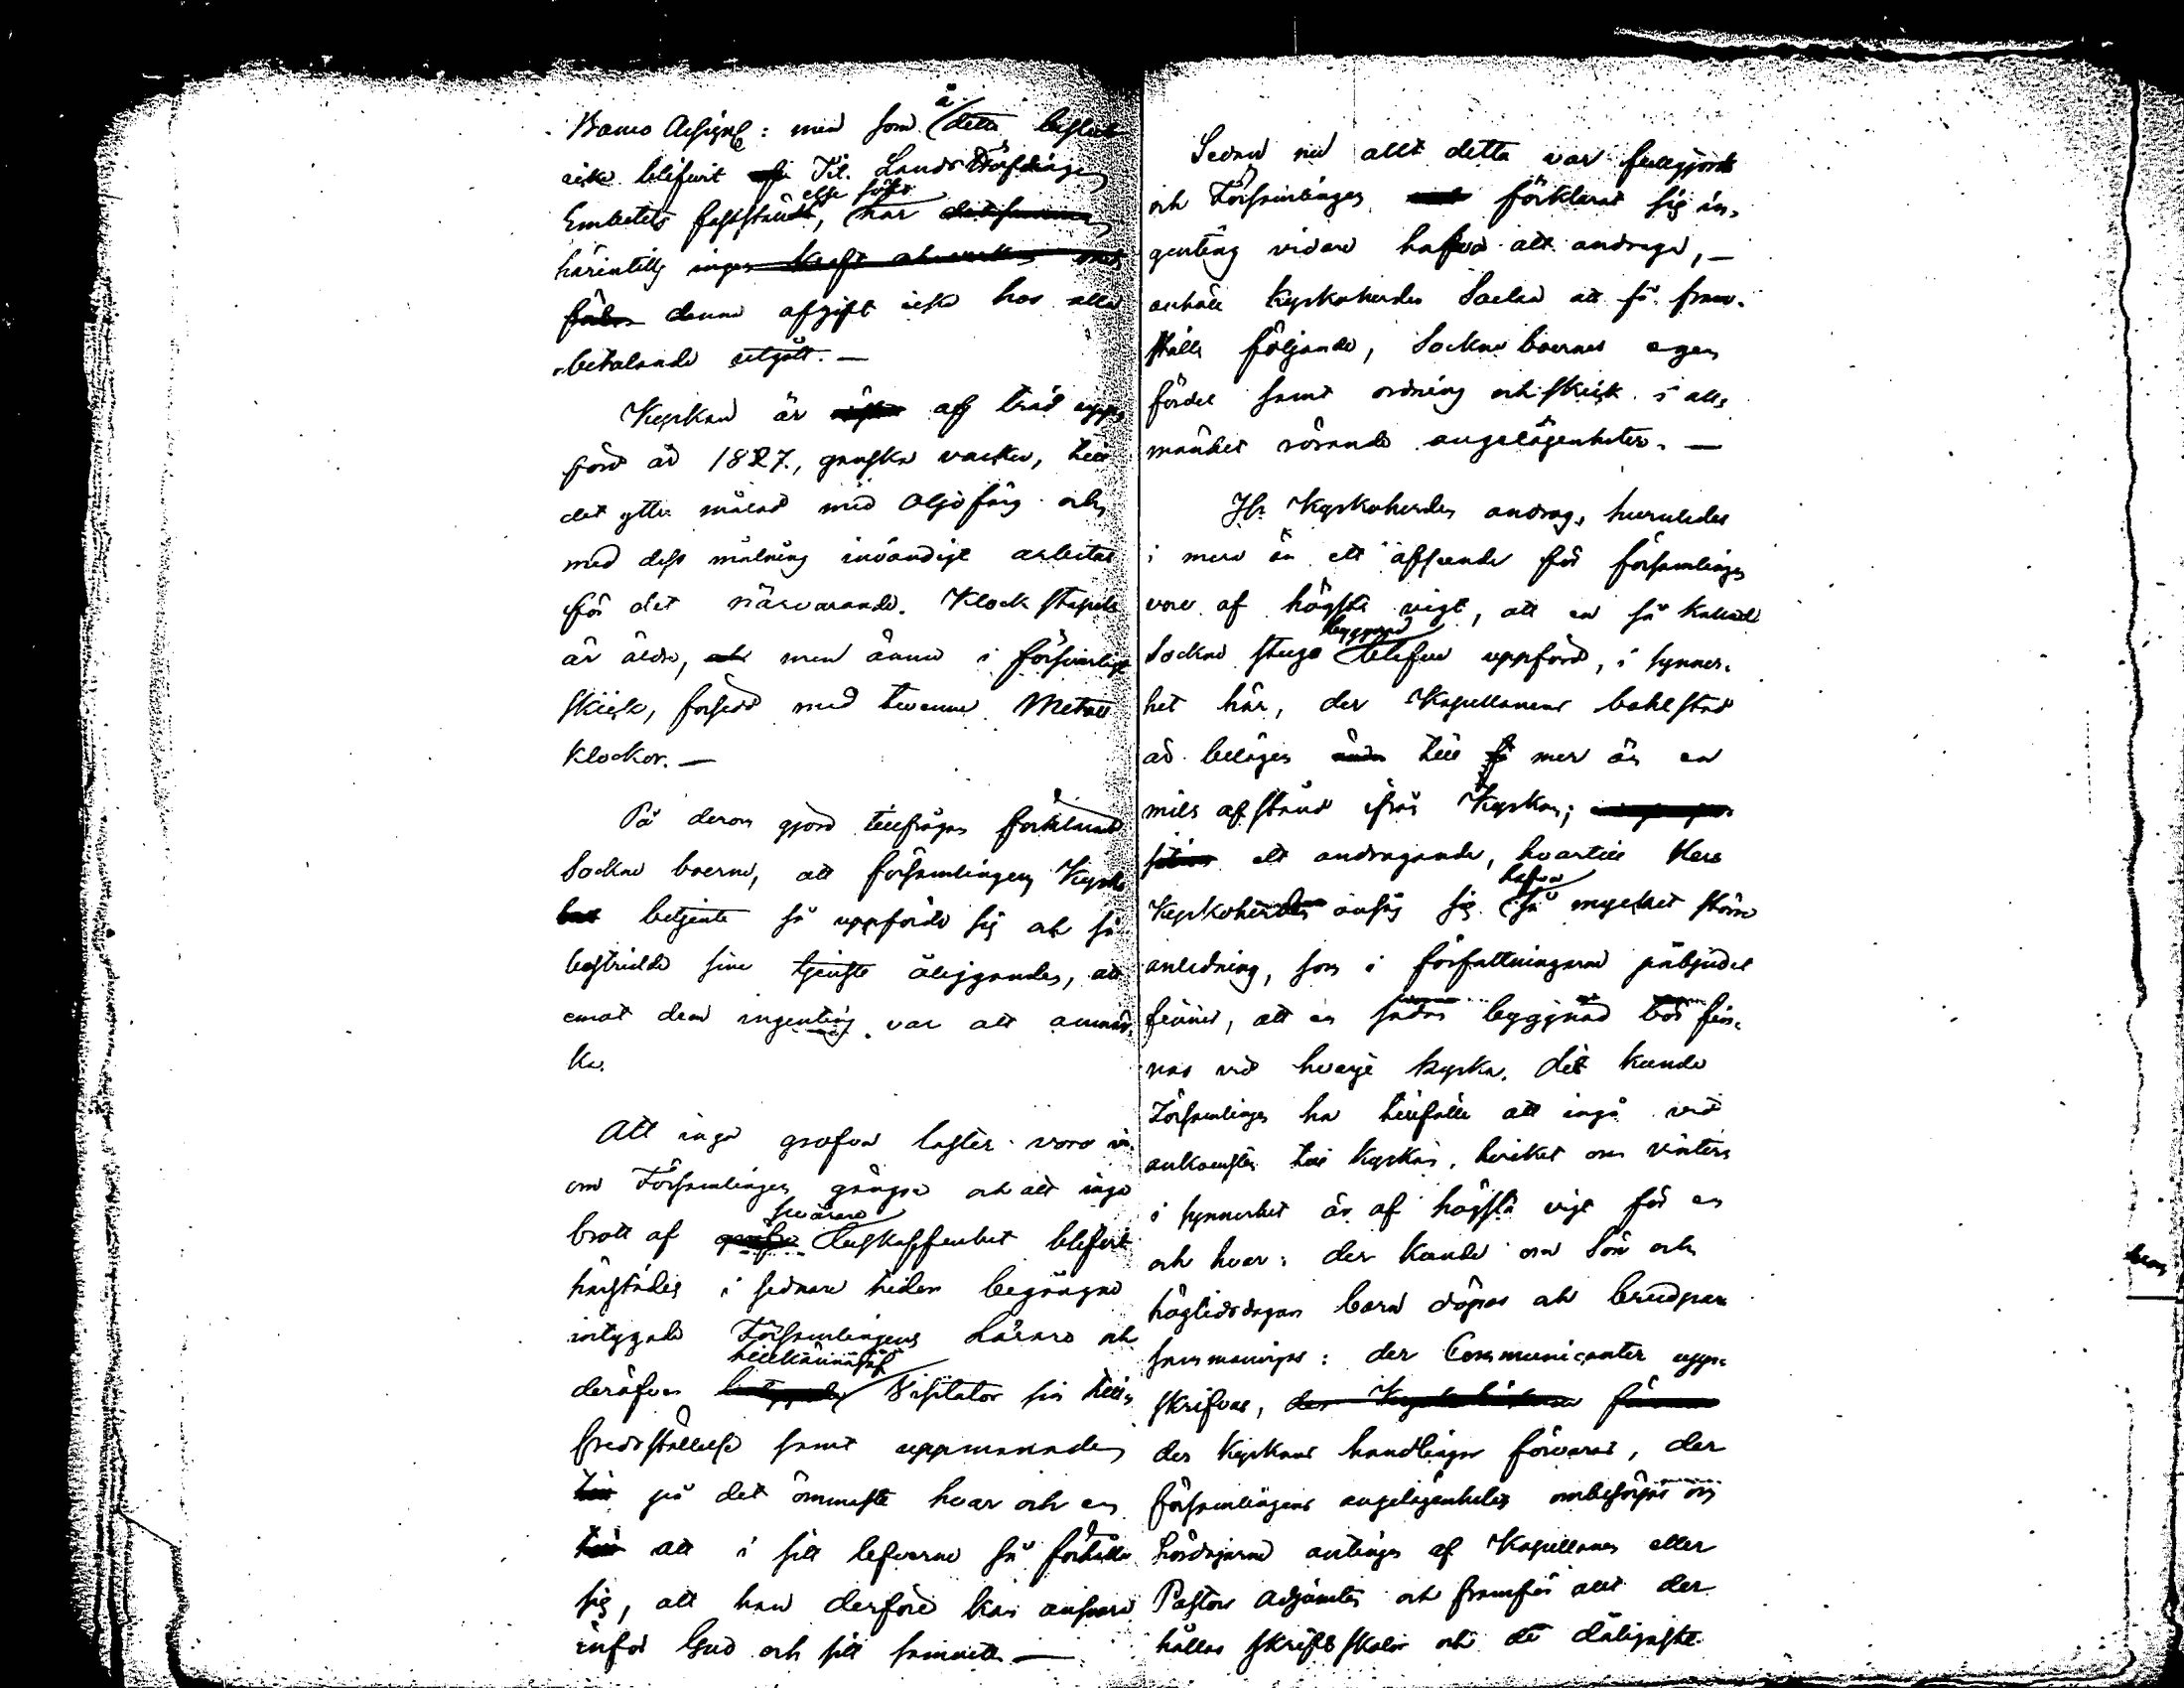 Banco Assign: men som å detta beslut
icke blifvit Tit. LandsHöfdinge
Embetets fastställd, har
härintills
denna afgift icke hos alla
betalande utgått. —
Kyrkan är af träd upp
förd år 1827, ganska vacker, till
det yttre målad med Oljefärg och
med dess målning invändigt arbetas
för det närvarande. Klockstapeln
är äldre, men ännu i försvarligt
skick, försedd med tvenne Metall
klockor. —
På derom gjord tillfrågan förklarade
Sockne boerne, att församlingens Kyrko
betjente så uppförde sig och så
bestridde sine tjenste åligganden, att
emot dem ingenting var att anmär-
ka.
Att inga grofva laster voro in-
om Församlingen gängse och att inga
brott af svårare beskaffenhet blifvit
härstädes i sednare tider begångne
intygade Församlingens Lärare och
deröfver tillkännagaf Visitator sin till-
fredsställelse samt uppmanade
på det ömmaste hvar och en
att i sitt lefverne så förhålla
sig, att han derföre kan ansvara
inför Gud och sitt samvete —
Sedan nu allt detta var fullgjordt
och Församlingen förklarat sig in-
genting vidare hafva att andraga, —
anhöll Kyrkoherden att få fram-
ställa följande, Sockneboernes egen
fördel samt ordning och skick i all-
mänhet rörande angelägenheter. —
Hr Kyrkoherden androg, huruledes
i mera än ett afseende för församlingen
vore af högsta vigt, att en så kallad
Socknestuga byggnad blefve uppförd, i synner-
het här, der Kapellanens bohlstad
är belägen till mer än en
mils afstånd ifrån Kyrkan;
ett andragande, hvartill Herr
Kyrkoherden ansåg sig hafva så mycket större
anledning, som i författningarne påbjudet
finnes, att en sådan byggnad bör fin-
nas vid hvarje kyrka. Det kunde
Församlingen ha tillfälle att ingå vid
ankomsten till Kyrkan, hvilket om vintern
i synnerhet är af högsta vigt för en
och hvar: der kunde om Sön och
högtidsdagar barn döpas och brudpar
sammanvigas: der Communicanter upp-
skrifvas,
der Kyrkans handlingar förvaras, der
församlingens angelägenheter ombesörjas om
Lördagarne antingen af Kapellanen eller
Pastors Adjuncten och framför allt der
hållas skriftskolor och de dåligaste